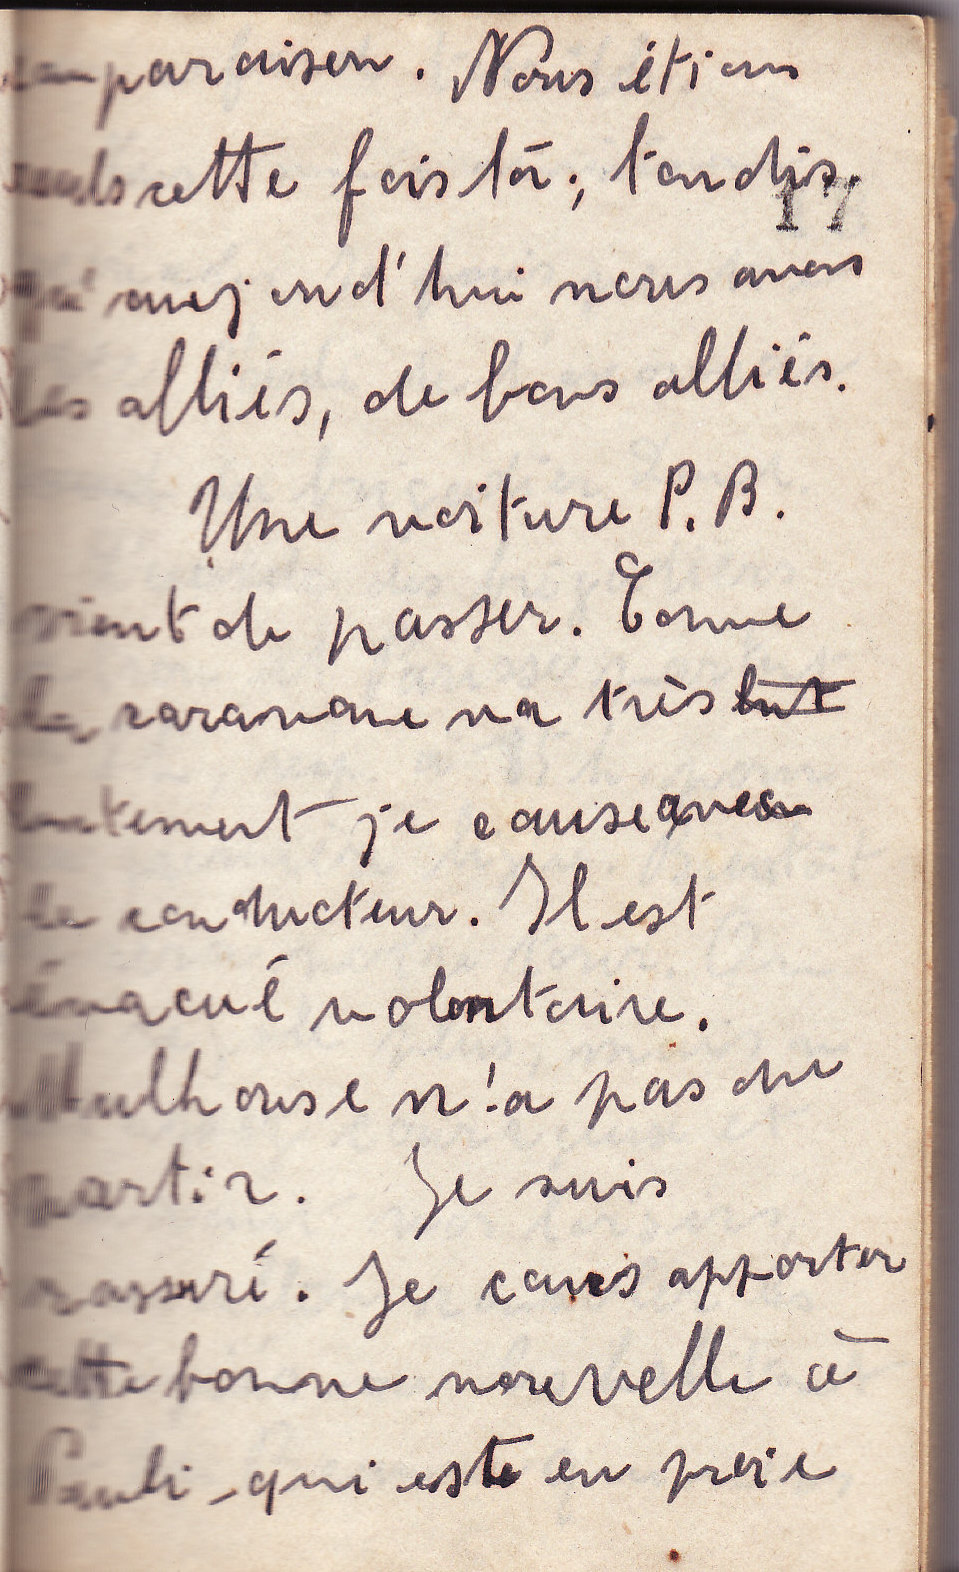 comparaison. Nous étions
seuls cette fois là; tandis
17
qu'aujourd'hui nous avons
des alliés, de bons alliés.
Une voiture P.B.
vient de passer. Comme
la caravane va très lent
lentement je cause avec
le conducteur. Il est
évacué volontaire.
Mulhouse n'a pas du
partir. Je suis
rassuré. Je cours apporter
cette bonne nouvelle à
Pauli, qui est en proie